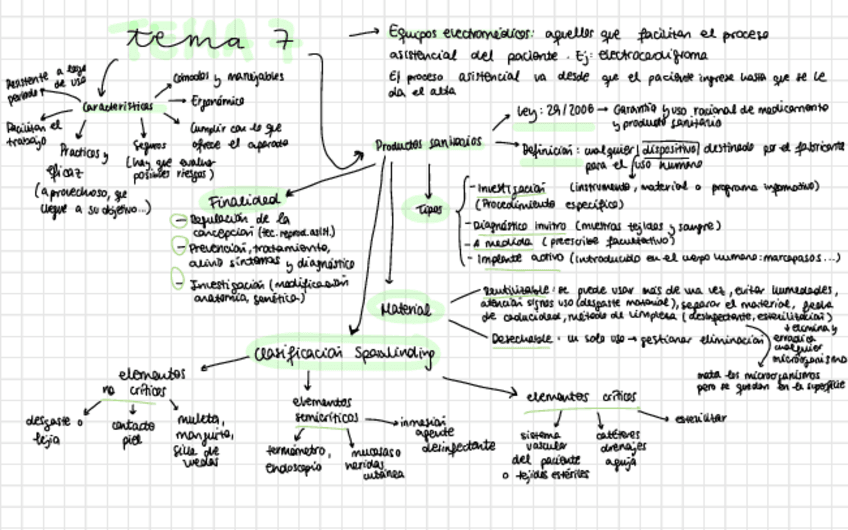 TEMA 7
tema 7
→ Equipos electromédicos: aquellos que facilitan el proceso
asistencial del paciente. Ej: electrocardiograma
El proceso asistencial va desde que el paciente ingresa hasta que se le
da el alta
Resistente a largo
periodo de uso
Cómodos y manejables
Características
Ergonómico
Facilitan el
trabajo
Prácticos y
eficaz
(aprovechoso, que
llegue a su objetivo...)
Seguros
(hay que evaluar
posibles riesgos)
Cumplir con lo que
ofrece el aparato
Productos sanitarios
Ley: 29/2006 → Garantía y uso racional de medicamento
y producto sanitario
Definición: cualquier dispositivo destinado por el fabricante
para el uso humano
(instrumento, material o programa informativo)
Tipos
- Investigación
(Procedimiento específico)
- Diagnóstico invitro (metras tejidos y sangre)
- A medida (prescribe facultativo)
- Implante activo (introducido en el cuerpo humano: marcapasos...)
Finalidad
- Regulación de la
concepción (tec. reprod. asis.)
- Prevención, tratamiento,
alivio síntomas y diagnóstico
- Investigación (modificación
anatomía, genética)
Material
Reutilizable: se puede usar más de una vez, evitar humedades,
atención signos uso (desgaste material), separar el material, fecha
de caducidad, método de limpieza (desinfectante, esterilización)
Desechable: un solo uso → gestionar eliminación
elimina y
erradica
cualquier
microorganismo
mata los microorganismos
pero se quedan en la superficie
Clasificación Spaulinding
elementos
no críticos
desgaste o
lejía
contacto
piel
muleta,
manguito,
silla de
ruedas
elementos
semicríticos
termómetro,
endoscopio
mucosas o
heridas
cutánea
inmersión
agente
desinfectante
elementos críticos
sistema
vascular
del paciente
o tejidos estériles
catéteres
drenajes
aguja
esterilizar